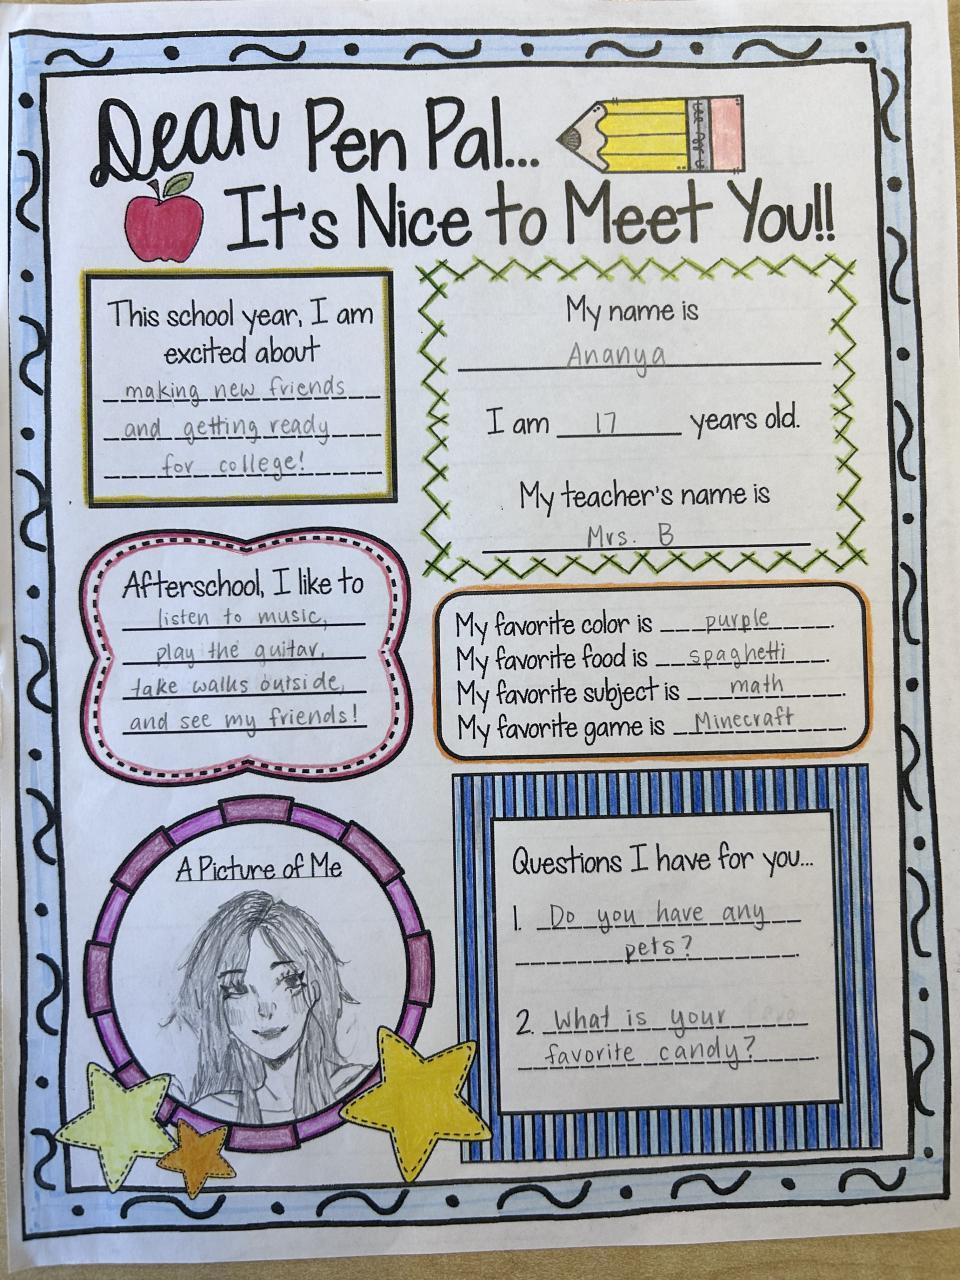 Dear Pen Pal...
It's Nice to Meet You!!
This school year, I am
excited about
making new friends
and getting ready
for college!
My name is
Ananya
I am 17 years old.
My teacher's name is
Mrs. B
Afterschool, I like to
listen to music,
play the guitar,
take walks outside,
and see my friends!
My favorite color is purple.
My favorite food is spaghetti.
My favorite subject is math.
My favorite game is Minecraft.
A Picture of Me
Questions I have for you...
1. Do you have any
pets?.
2. What is your
favorite candy?.